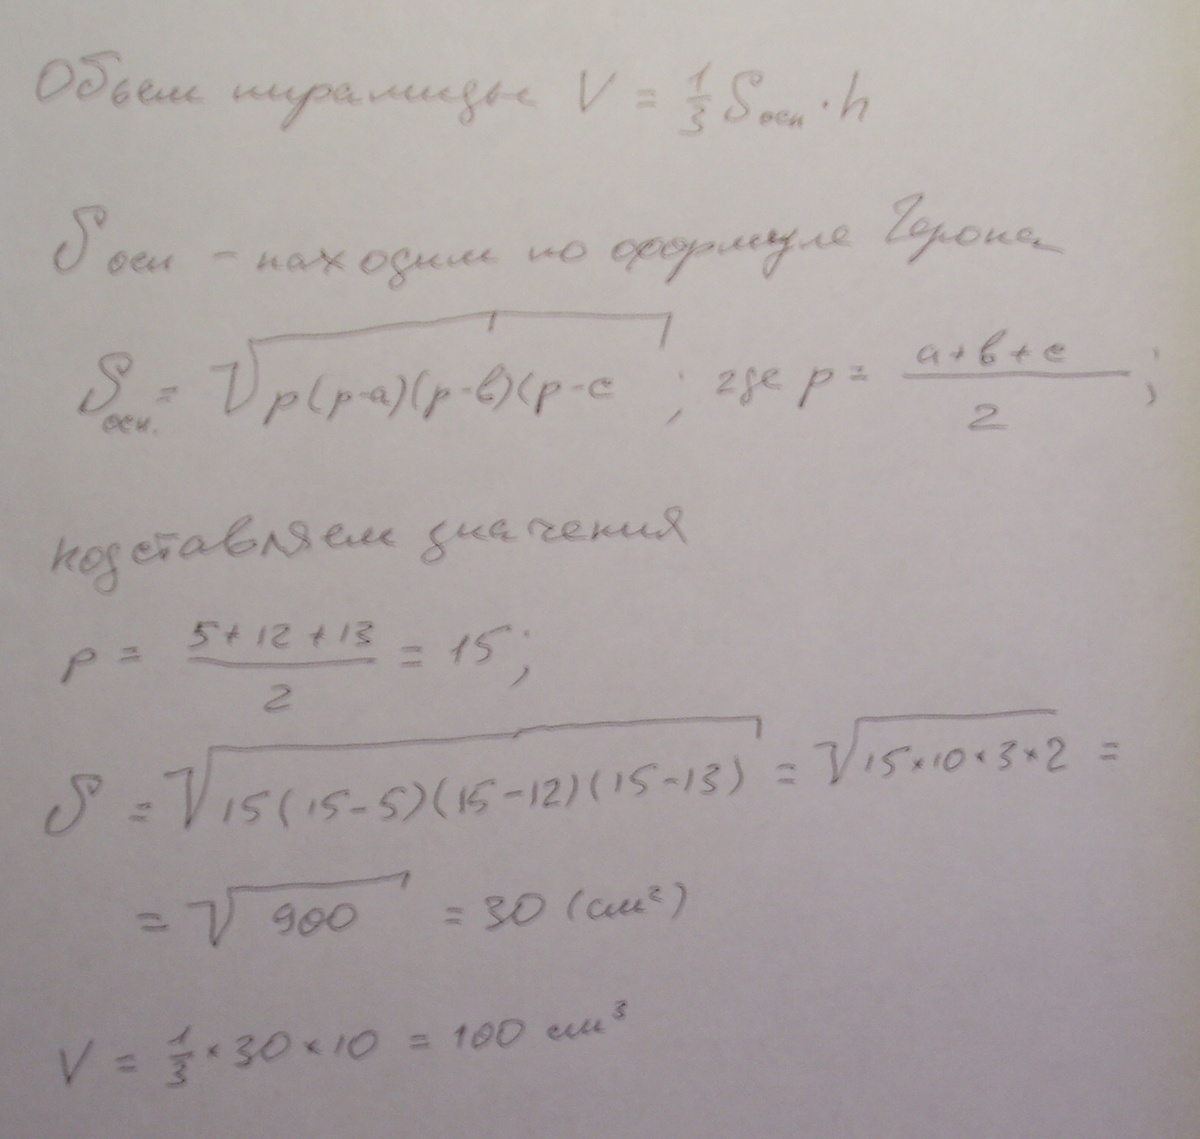 Объем пирамиды V = 1/3 Sосн · h
Sосн – находим по формуле Герона
Sосн. = √p(p-a)(p-b)(p-c ; где p = a+b+c / 2 ;
подставляем значения
p = 5+12+13 / 2 = 15;
S = √15(15-5)(15-12)(15-13) = √15×10×3×2 =
= √900 = 30 (см²)
V = 1/3 × 30 × 10 = 100 см³